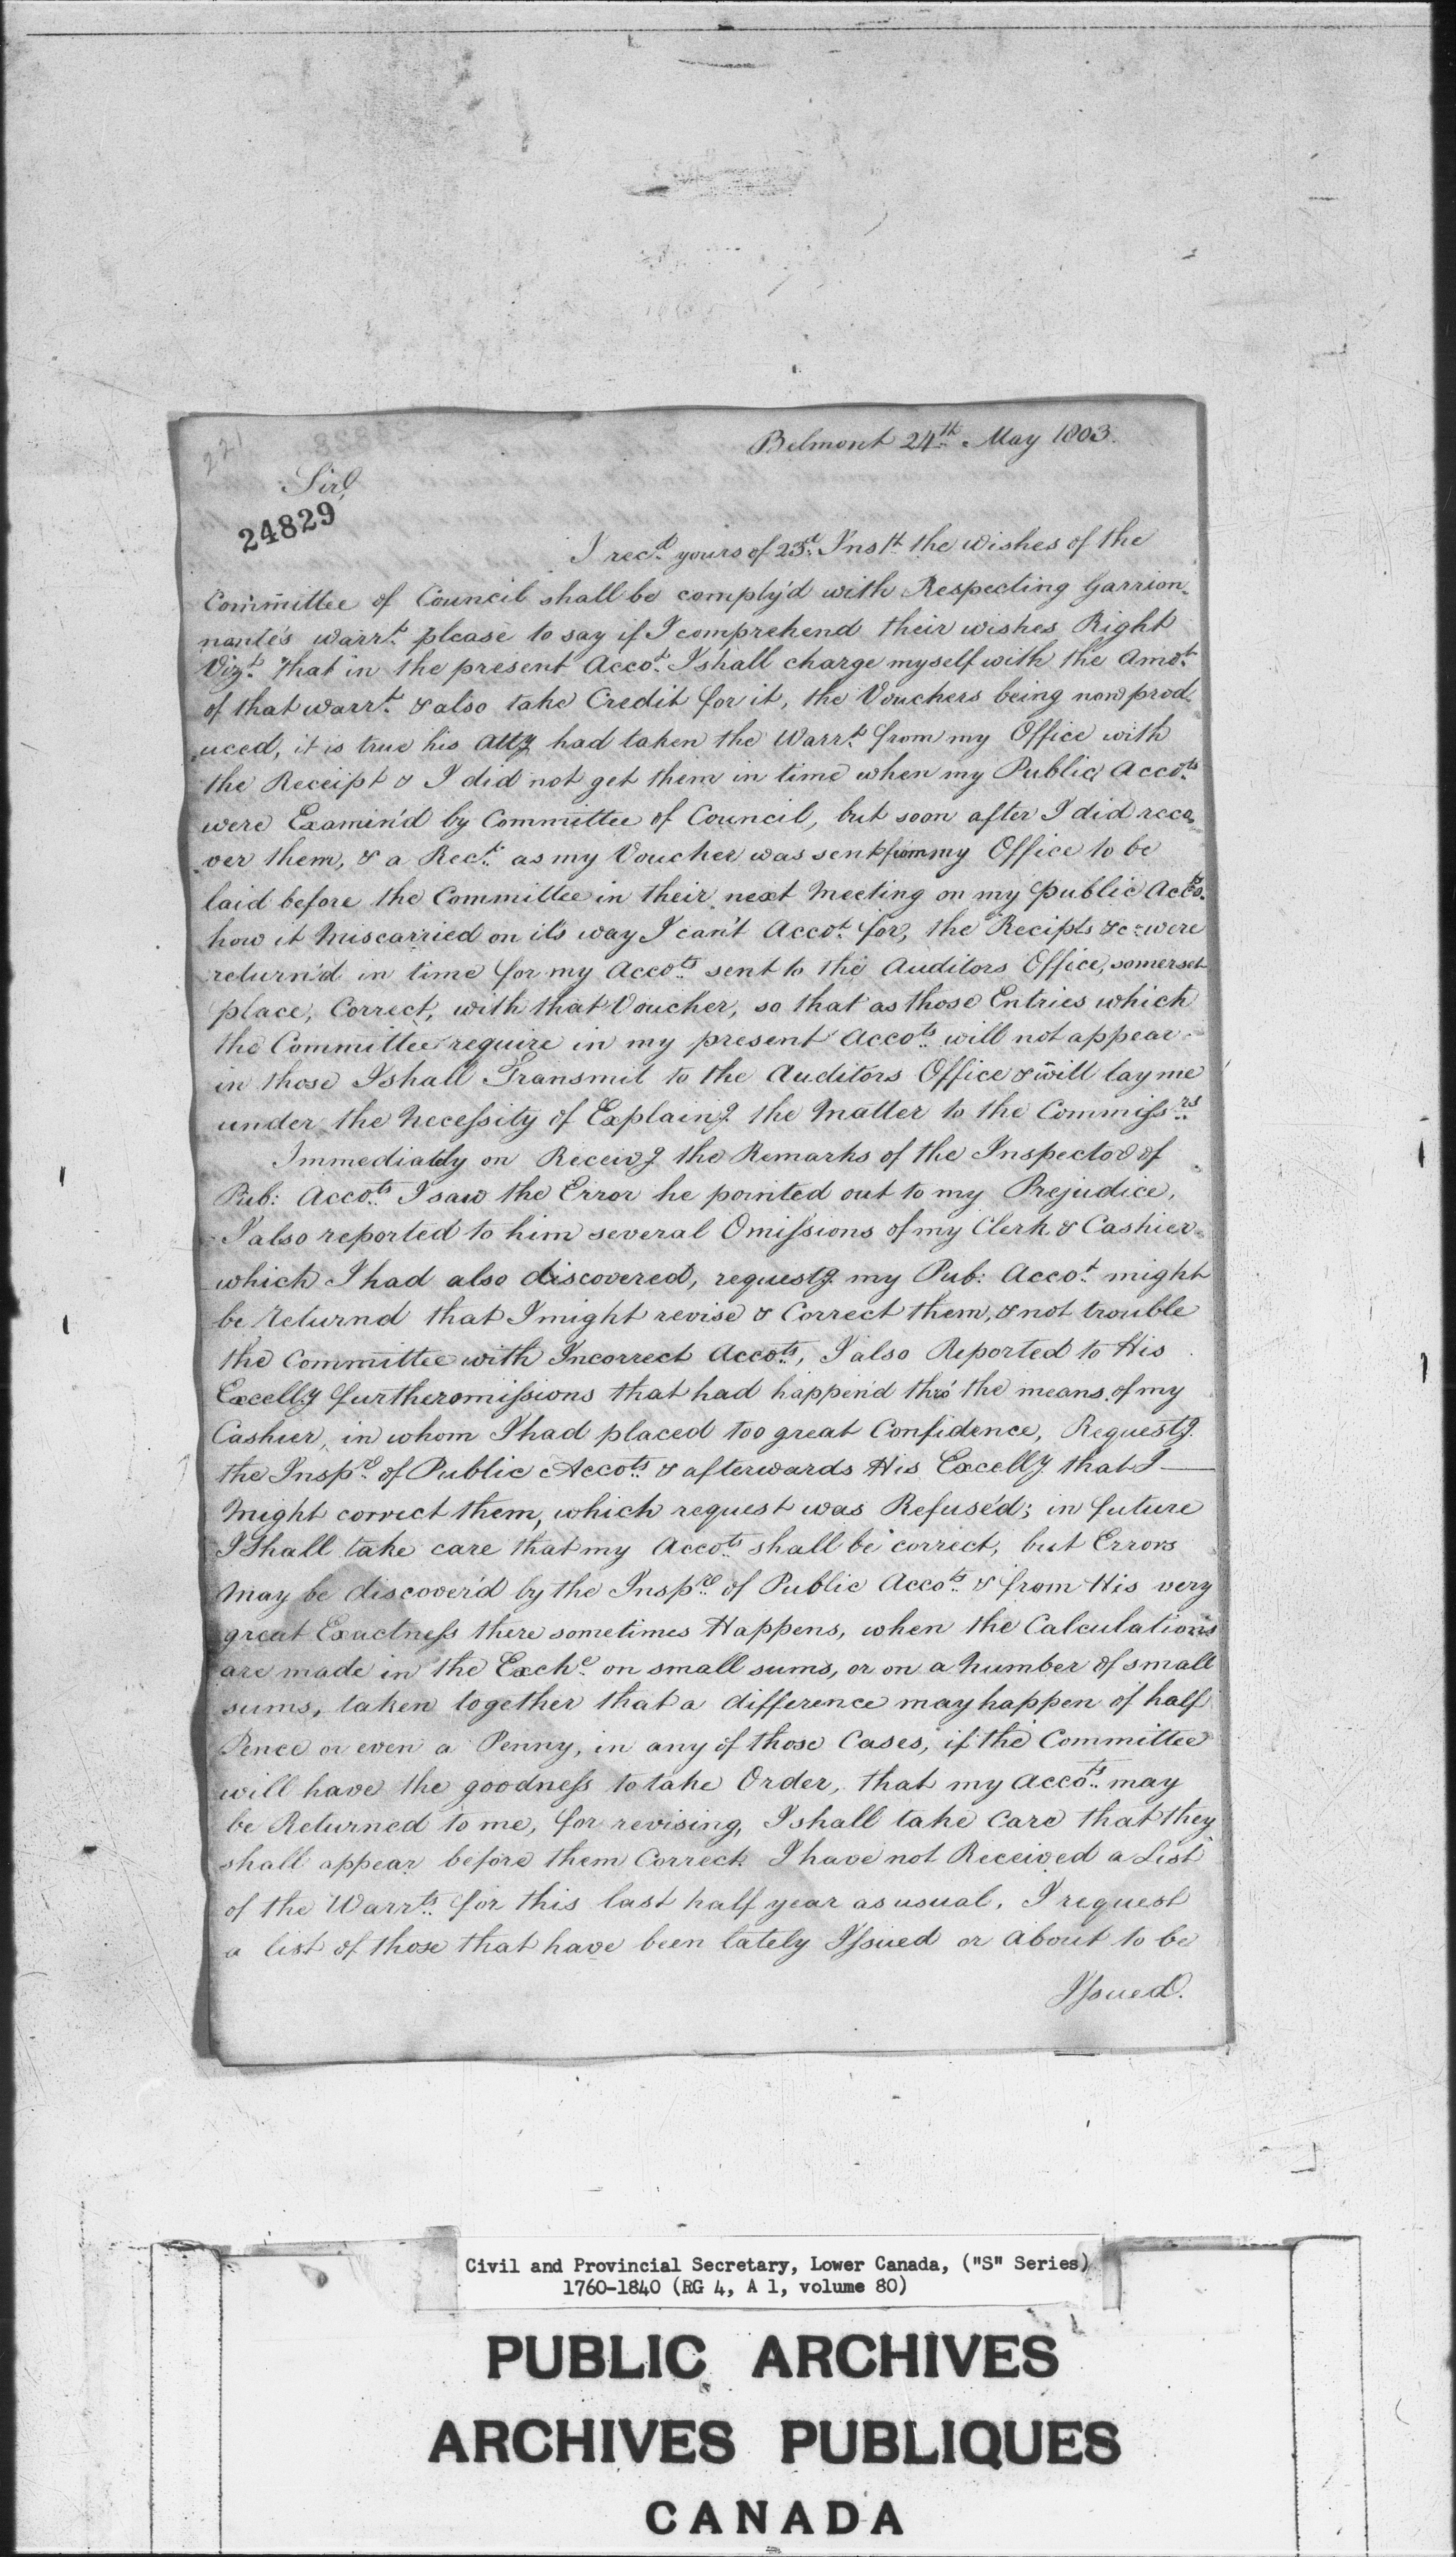 Belmont 24th May 1803.
Sir,
24829
I recd. yours of 23d. Inst. the wishes of the
Committee of Council shall be comply'd with Respecting Garrion-
nante's warrt. please to say if I comprehend their wishes Right
Vizt. that in the present Accot. I shall charge myself with the Amot.
of that warrt. & also take Credit for it, the Vouchers being now prod-
uced, it is true his Atty had taken the Warrt. from my Office with
the Receipt & I did not get them in time when my Public Accots.
were Examin'd by Committee of Council, but soon after I did reco-
ver them, & a Rect. as my Voucher was sent from my Office to be
laid before the Committee in their next Meeting on my public Accts.
how it Miscarried on its way I can't Accot. for, the Recipts &c. were
return'd in time for my Accots. sent to the Auditors Office, somerset
place, Correct, with that Voucher, so that as those Entries which
the Committee require in my present Accots. will not appear
in those I shall Transmit to the Auditors Office & will lay me
under the Necessity of Explaing. the Matter to the Commissrs.
Immediatly on Receivg the Remarks of the Inspector of
Pub: Accots. I saw the Error he pointed out to my Prejudice,
I also reported to him several Omissions of my Clerk & Cashier
which I had also discovered, requestg. my Pub: Accot. might
be returnd that I might revise & Correct them, & not trouble
the Committee with Incorrect Accots., I also Reported to His
Excelly further omissions that had happen'd thro' the means of my
Cashier, in whom I had placed too great Confidence, Requestg.
the Inspr. of Public Accots. & afterwards His Excelly that I —
Might correct them, which request was Refused; in future
I Shall take care that my Accots. shall be correct, but Errors
May be discover'd by the Inspr. of Public Accots. & from His very
great Exactness there sometimes Happens, when the Calculations
are made in the Exche. on small sums, or on a Number of small
sums, taken together that a difference may happen of half
Pence or even a Penny, in any of those Cases, if the Committee
will have the goodness to take Order, that my Accots. may
be Returned to me, for revising, I shall take Care that they
shall appear before them Correct. I have not Received a List
of the Warrts. for this last half year as usual. I request
a list of those that have been lately Issued or About to be
Issued.
Civil and Provincial Secretary, Lower Canada, ("S" Series)
1760-1840 (RG 4, A 1, volume 80)
PUBLIC ARCHIVES
ARCHIVES PUBLIQUES
CANADA